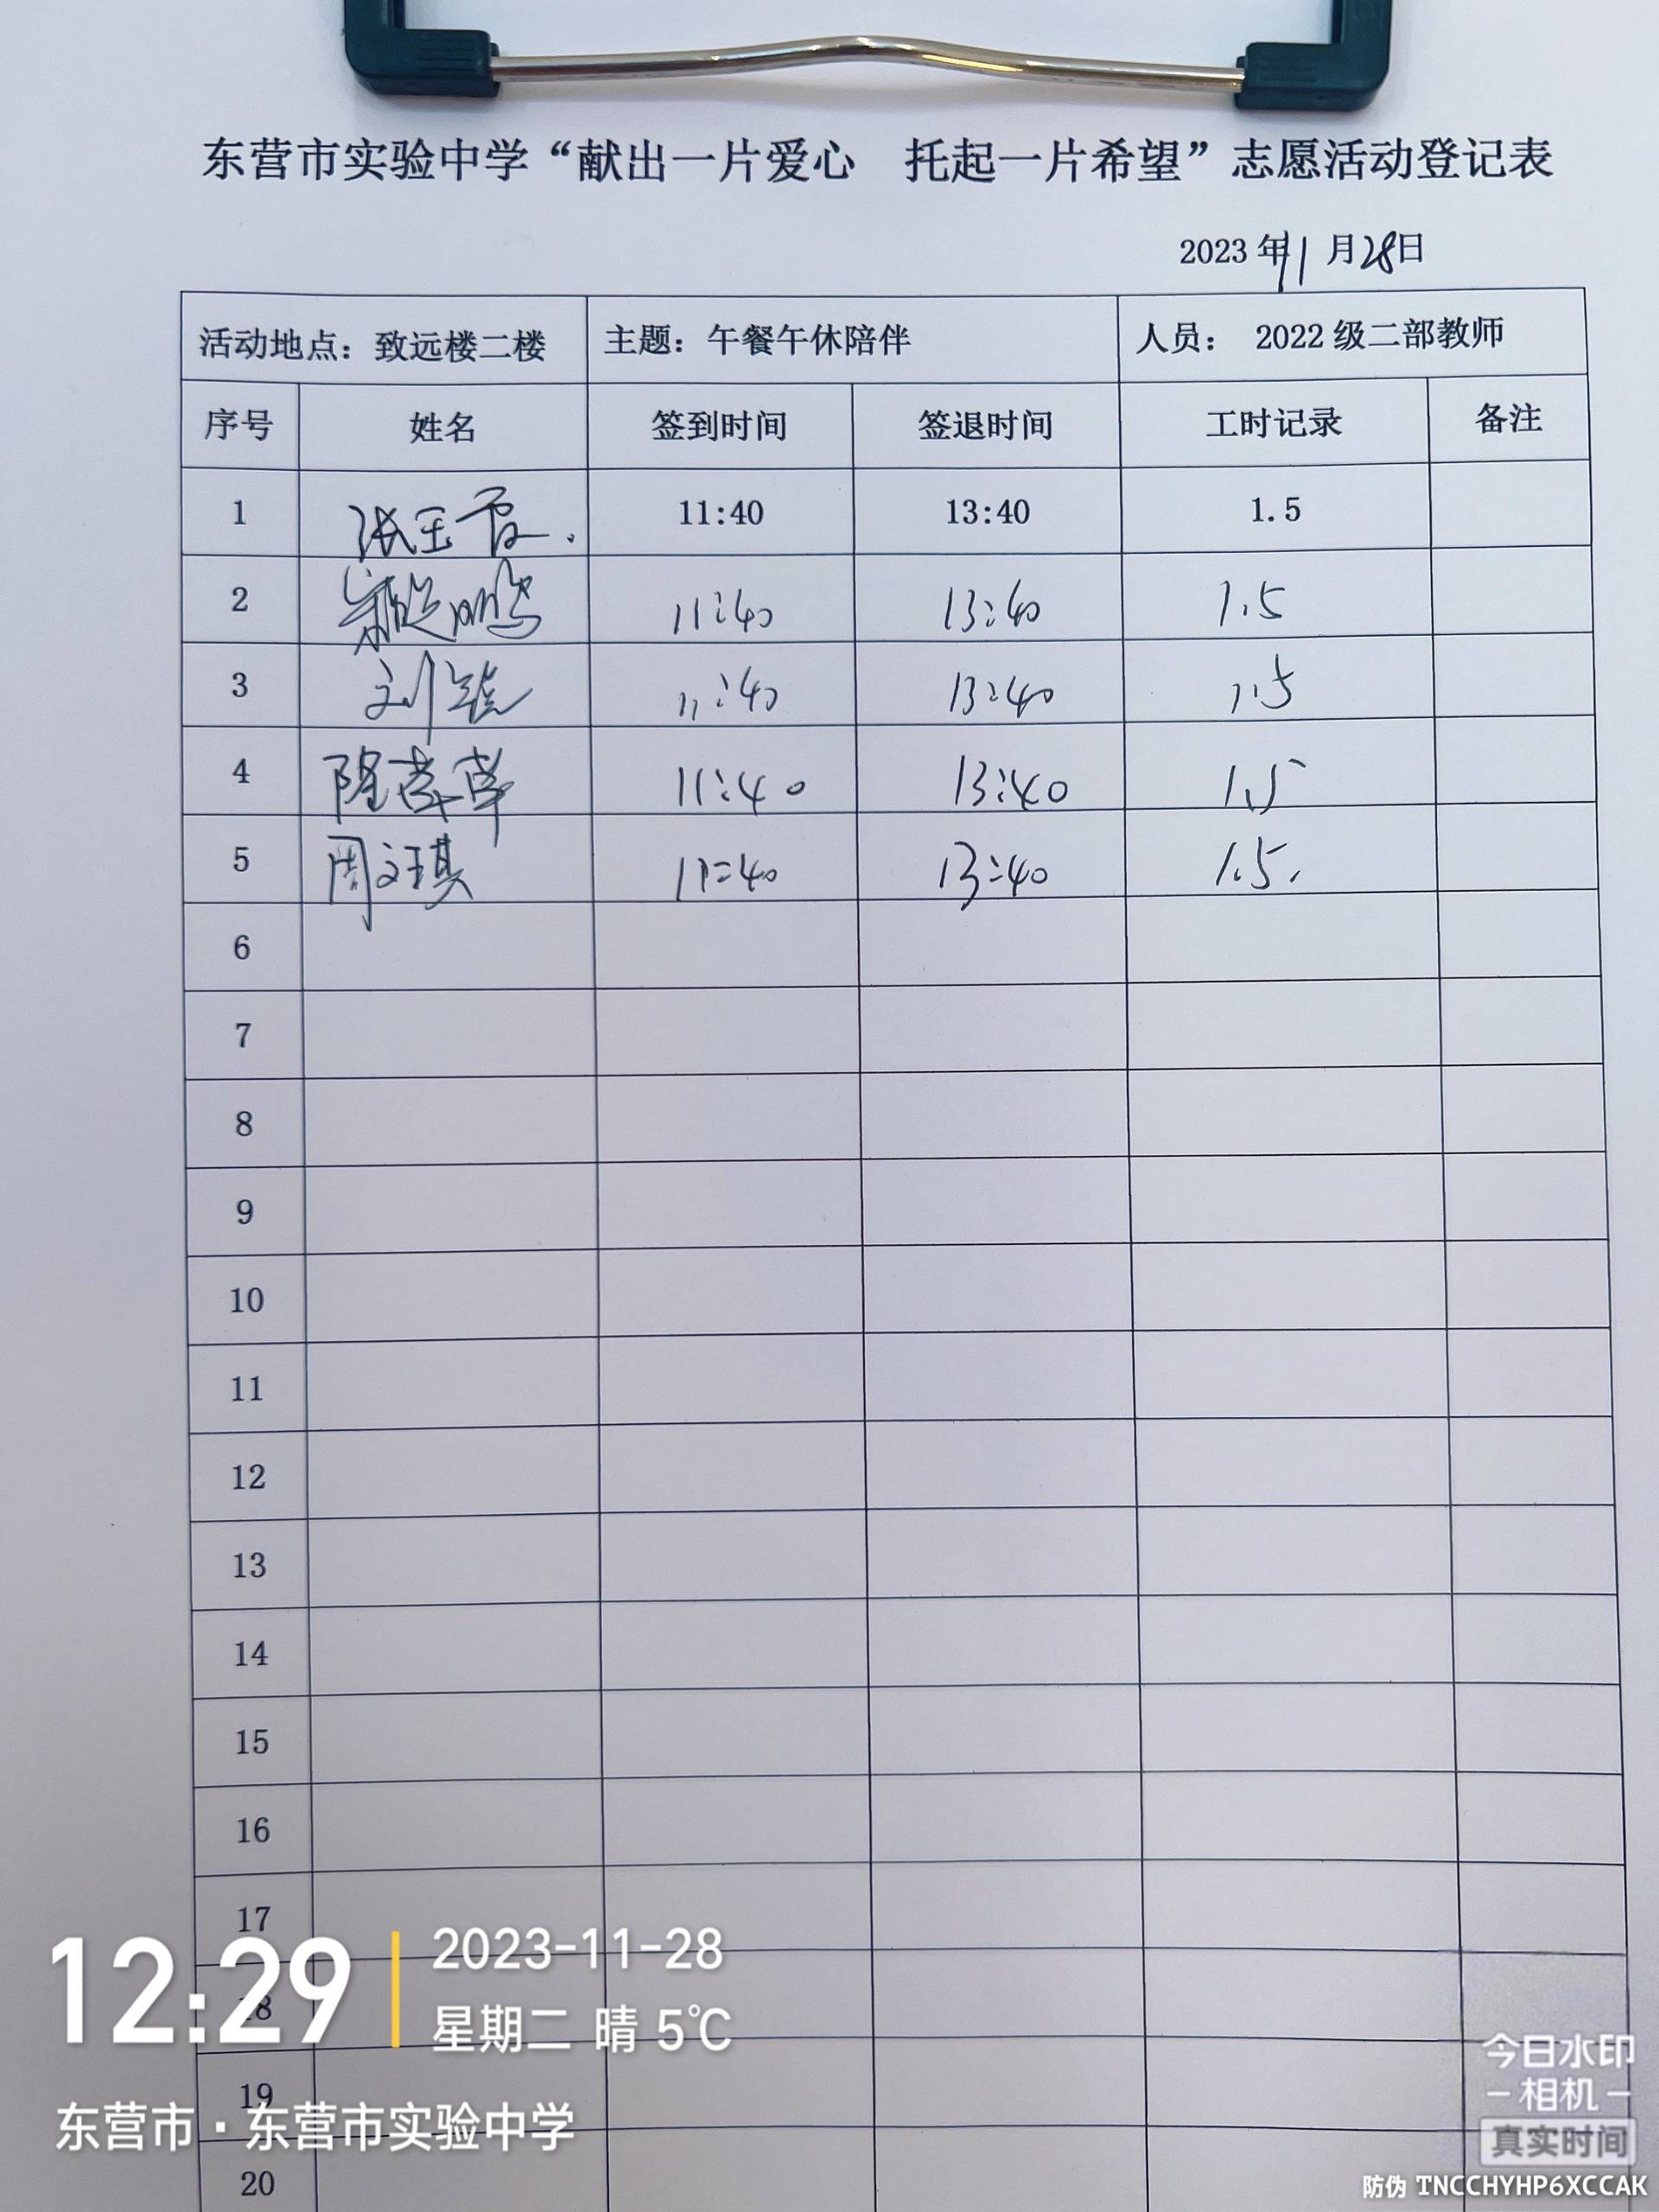 东营市实验中学“献出一片爱心 托起一片希望”志愿活动登记表
2023年11月28日
活动地点：致远楼二楼 主题：午餐午休陪伴 人员： 2022级二部教师
序号 姓名 签到时间 签退时间 工时记录 备注
1 张玉霞. 11:40 13:40 1.5
2 11:40 13:40 1.5
3 刘 11:40 13:40 1.5
4 隆 11:40 13:40 1.5
5 周文琪 11:40 13:40 1.5.
6
7
8
9
10
11
12
13
14
15
16
17
18
19
20
12:29
2023-11-28
星期二 晴 5℃
东营市·东营市实验中学
今日水印
-相机-
真实时间
防伪 TNCCHYHP6XCCAK